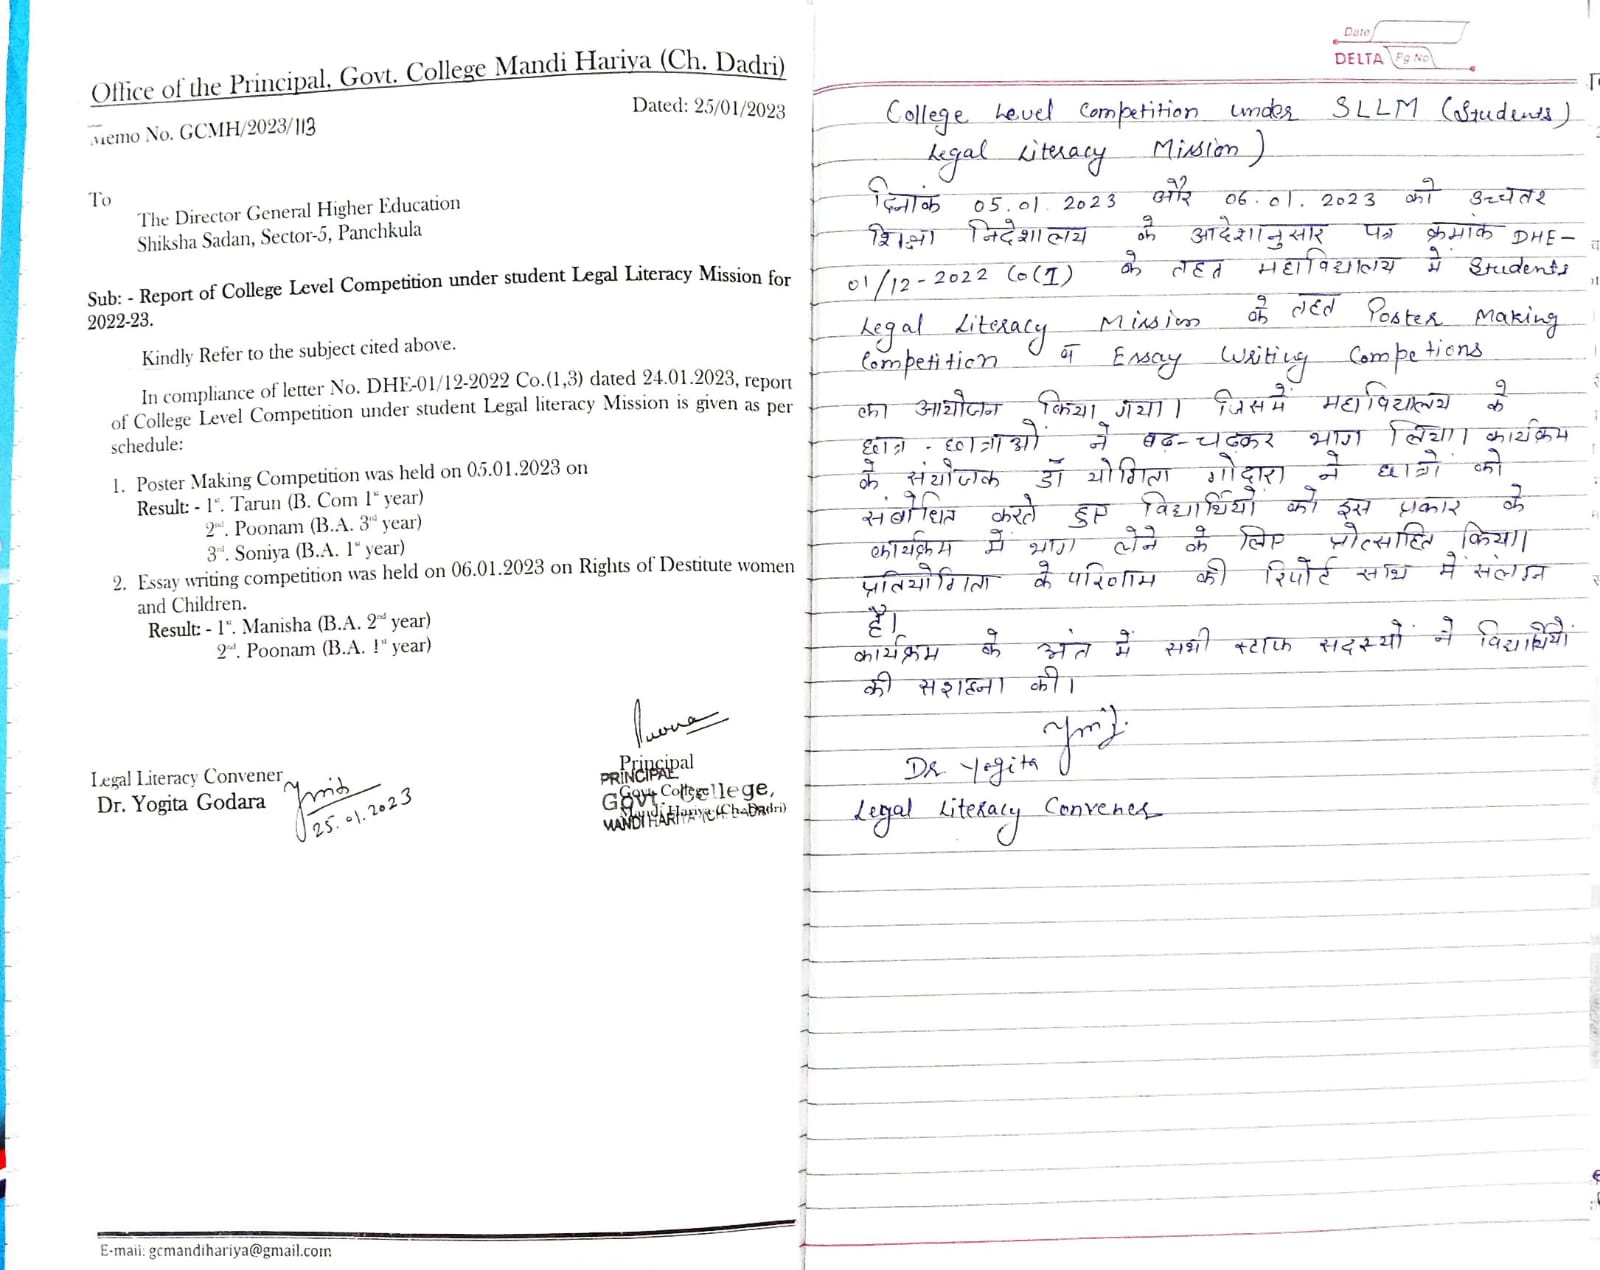 Office of the Principal, Govt. College Mandi Hariya (Ch. Dadri)
Memo No. GCMH/2023/113
Dated: 25/01/2023
To
The Director General Higher Education
Shiksha Sadan, Sector-5, Panchkula
Sub: - Report of College Level Competition under student Legal Literacy Mission for
2022-23.
Kindly Refer to the subject cited above.
In compliance of letter No. DHE-01/12-2022 Co.(1,3) dated 24.01.2023, report
of College Level Competition under student Legal literacy Mission is given as per
schedule:
1. Poster Making Competition was held on 05.01.2023 on
Result: - 1st. Tarun (B. Com 1st year)
2nd. Poonam (B.A. 3rd year)
3rd. Soniya (B.A. 1st year)
2. Essay writing competition was held on 06.01.2023 on Rights of Destitute women
and Children.
Result: - 1st. Manisha (B.A. 2nd year)
2nd. Poonam (B.A. 1st year)
Legal Literacy Convener
Dr. Yogita Godara
25.01.2023
Principal
Govt. College
Mandi Hariya (Ch. Dadri)
PRINCIPAL
GOVT. College,
MANDI HARIYA (CH. DADRI)
E-mail: gcmandihariya@gmail.com
Date
DELTA Pg No
College Level Competition under SLLM (Students)
Legal Literacy Mission)
दिनांक 05.01.2023 और 06.01.2023 को उच्चतर
शिक्षा निदेशालय के आदेशानुसार पत्र क्रमांक DHE-
01/12-2022 Co(I) के तहत महाविद्यालय में Students
Legal Literacy Mission के तहत Poster Making
Competition व Essay Writing Competions
का आयोजन किया गया। जिसमें महाविद्यालय के
छात्र-छात्राओं ने बढ़-चढ़कर भाग लिया। कार्यक्रम
के संयोजक डॉ योगिता गोदारा ने छात्रों को
संबोधित करते हुए विद्यार्थियों को इस प्रकार के
कार्यक्रम में भाग लेने के लिए प्रोत्साहित किया।
प्रतियोगिता के परिणाम की रिपोर्ट साथ में संलग्न
है।
कार्यक्रम के अंत में सभी स्टाफ सदस्यों ने विद्यार्थियों
की सराहना की।
Dr Yogita
Legal Literacy Convener